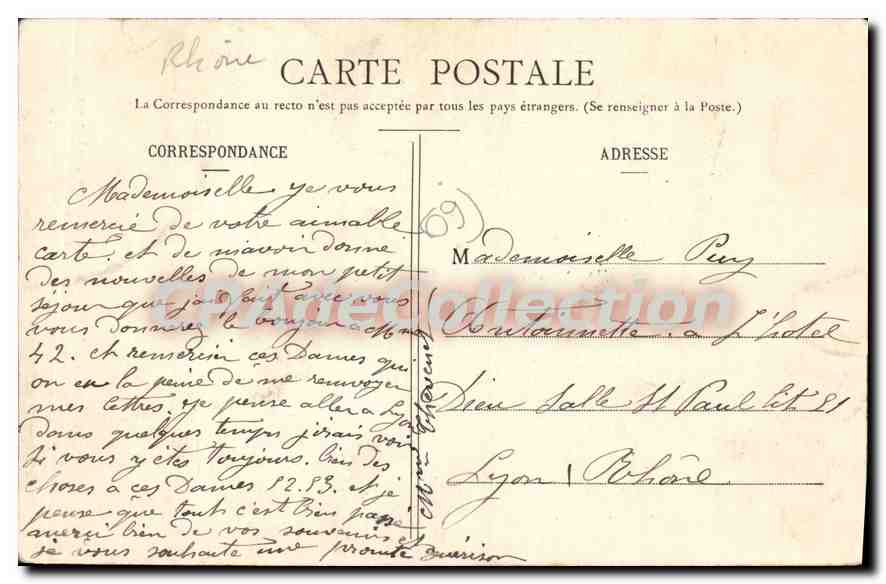 Rhône
CARTE POSTALE
La Correspondance au recto n'est pas acceptée par tous les pays étrangers. (Se renseigner à la Poste.)
CORRESPONDANCE
ADRESSE
Mademoiselle ye vous
remercie de votre aimable
carte. et de m'avoir donné
des nouvelles de mon petit
séjour que jai fait avec vous
vous donnerez le bonjour a Mme
42. et remercier ces Dames qui
on eu la peine de me renvoyer
mes lettres. ye pense aller a Lyon
dans quelques temps jirais voir
si vous y êtes toujours. bien des
choses a ces Dames 82.83. et je
pense que tout c'est bien passé
merci bien de vos souvenirs et
je vous souhaite une promte Guérison
Mme Thevenet
69
Mademoiselle Puy
Antoinnette. a L'hotel
Dieu Salle St Paul lit 81
Lyon Rhône
CPArdeCollection